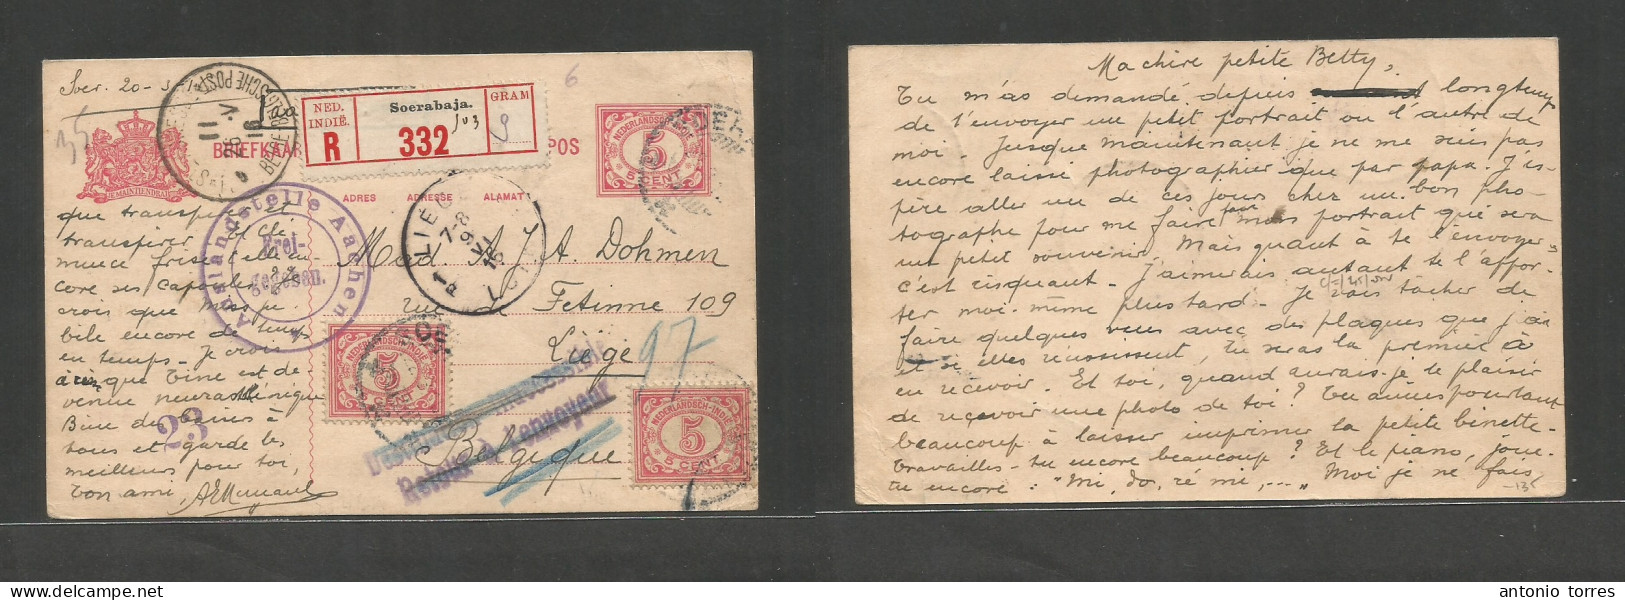 Soer. 20-3-1
35
6
NED. INDIË.
R
Soerabaja.
332
GRAM
9
BRIEFKAART
POS
JE MAINTIENDRAI
ADRES ADRESSE ALAMAT
NEDERLANDSCH-INDIE
5
5 CENT
Auslandstelle Aachen
Frei-
gegeben.
LIEGE
7-8
9 VI
Mad A. J. A. Dohmen
rue Fetinne 109
Liège
Belgique
97
Retour à l'envoyeur
23
NEDERLANDSCH-INDIE
5
5 CENT
NEDERLANDSCH-INDIE
5
5 CENT
que transpirer et
transpirer
crois que
bile encore de temps
en temps. Je crois
que Tine est de
venue neurasthénique
tous et garde les
meilleurs pour toi,
Ton ami,
Ma chère petite Betty,
Tu m'as demandé depuis longtemps
de t'envoyer un petit portrait ou l'autre de
moi. Jusque maintenant je ne me suis pas
encore laissé photographier que par papa. J'es-
père aller un de ces jours chez un bon pho-
tographe pour me faire faire mon portrait qui sera
un petit souvenir. Mais quant à te l'envoyer
c'est risquant. J'aimerais autant te l'appor-
ter moi-même plus tard. Je vais tâcher de
faire quelques vues avec des plaques que j'ai
et si elles réussissent, tu seras la première à
en recevoir. Et toi, quand aurais-je le plaisir
de recevoir une photo de toi? Tu aimes pourtant
beaucoup à laisser imprimer ta petite binette.
Travailles-tu encore beaucoup? Et le piano, joue-
tu encore: "Mi, do, ré mi,..." Moi je ne fais
-135
antonio torres